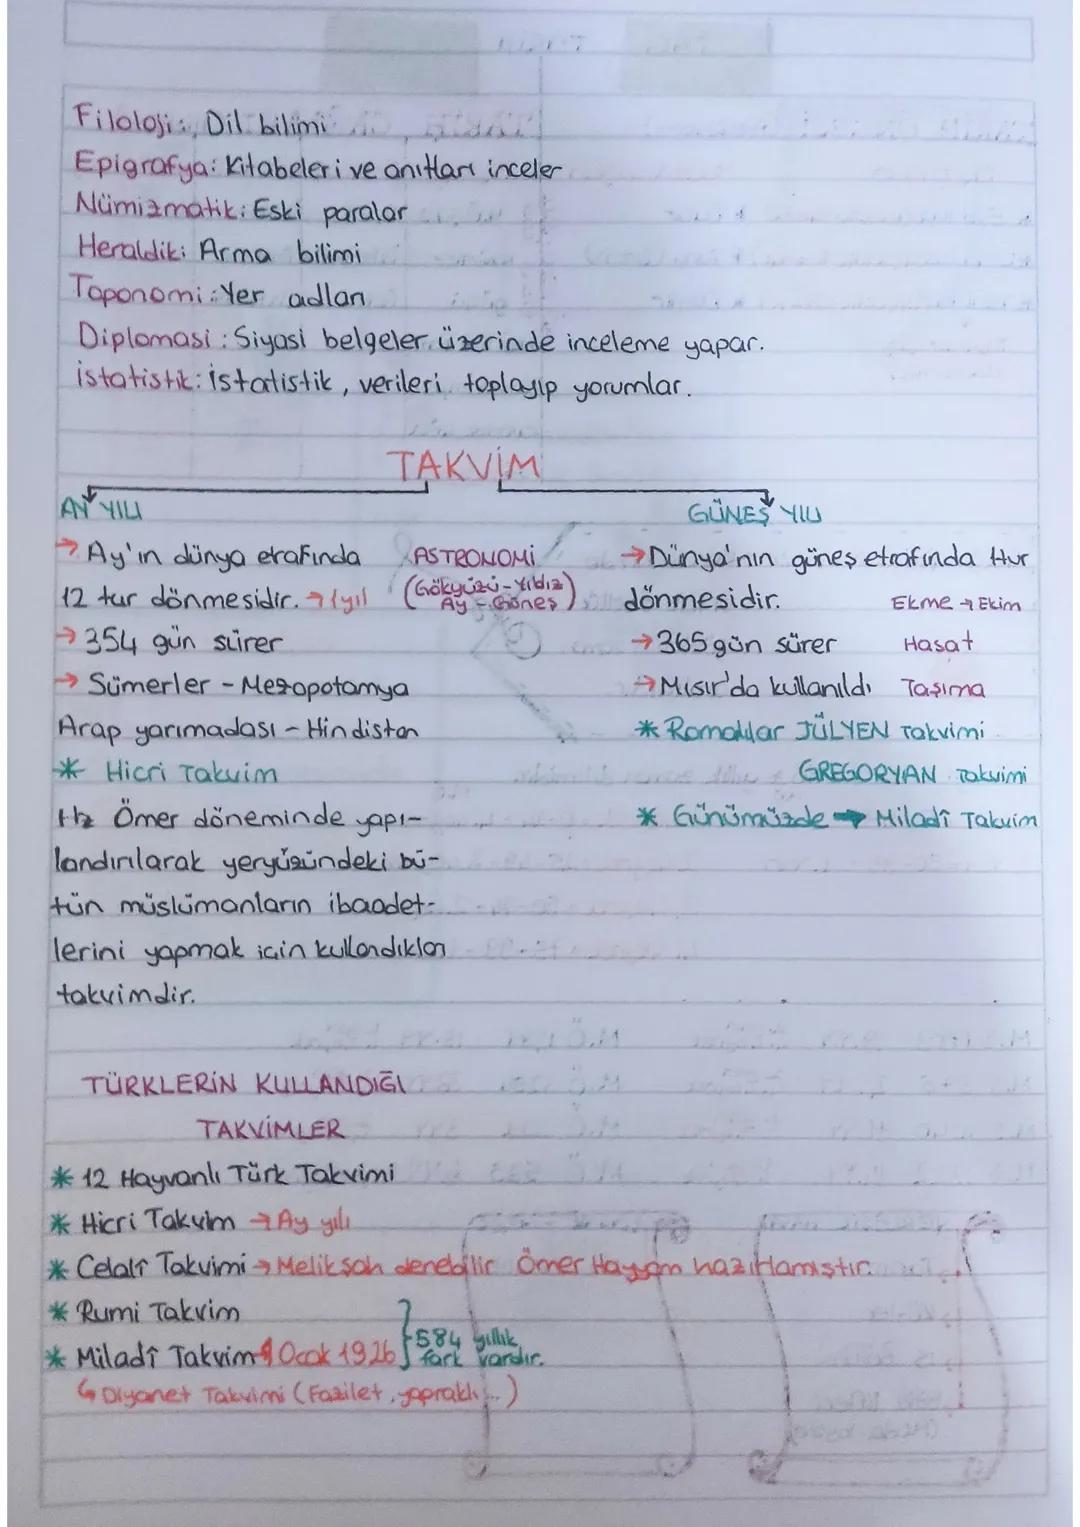 Filoloji: Dil bilimi
Epigrafya: Kitabeleri ve anıtları inceler
Nümizmatik: Eski paralar
Heraldik: Arma bilimi
Toponomi: Yer adları
Diplomasi: Siyasi belgeler üzerinde inceleme yapar.
istatistik: İstatistik, verileri toplayıp yorumlar.
TAKVİM
AY YILI
→ Ay'ın dünya etrafında
12 tur dönmesidir. → 1 yıl
→ 354 gün sürer
→ Sümerler - Mezopotamya
Arap yarımadası - Hindistan
* Hicri Takvim
Hz Ömer döneminde yapı-
landırılarak yeryüzündeki bü-
tün müslümanların ibaadet-
lerini yapmak için kullandıkları
takvimdir.
ASTRONOMİ
(Gökyüzü - Yıldız
Ay - Güneş)
GÜNEŞ YILI
→ Dünya'nın güneş etrafında tur
dönmesidir.
Ekme → Ekim
→ 365 gün sürer Hasat
→ Mısır'da kullanıldı Taşıma
* Romalılar JÜLYEN Takvimi
GREGORYAN Takvimi
* Günümüzde → Miladî Takvim
TÜRKLERİN KULLANDIĞI
TAKVİMLER
* 12 Hayvanlı Türk Takvimi
* Hicri Takvim → Ay yılı
* Celalî Takvimi → Melikşah denebilir Ömer Hayyam hazırlamıştır.
* Rumi Takvim
* Miladî Takvim 1 Ocak 1926 } 584 yıllık
fark vardır.
↳ Diyanet Takvimi (Fazilet, yapraklı...)